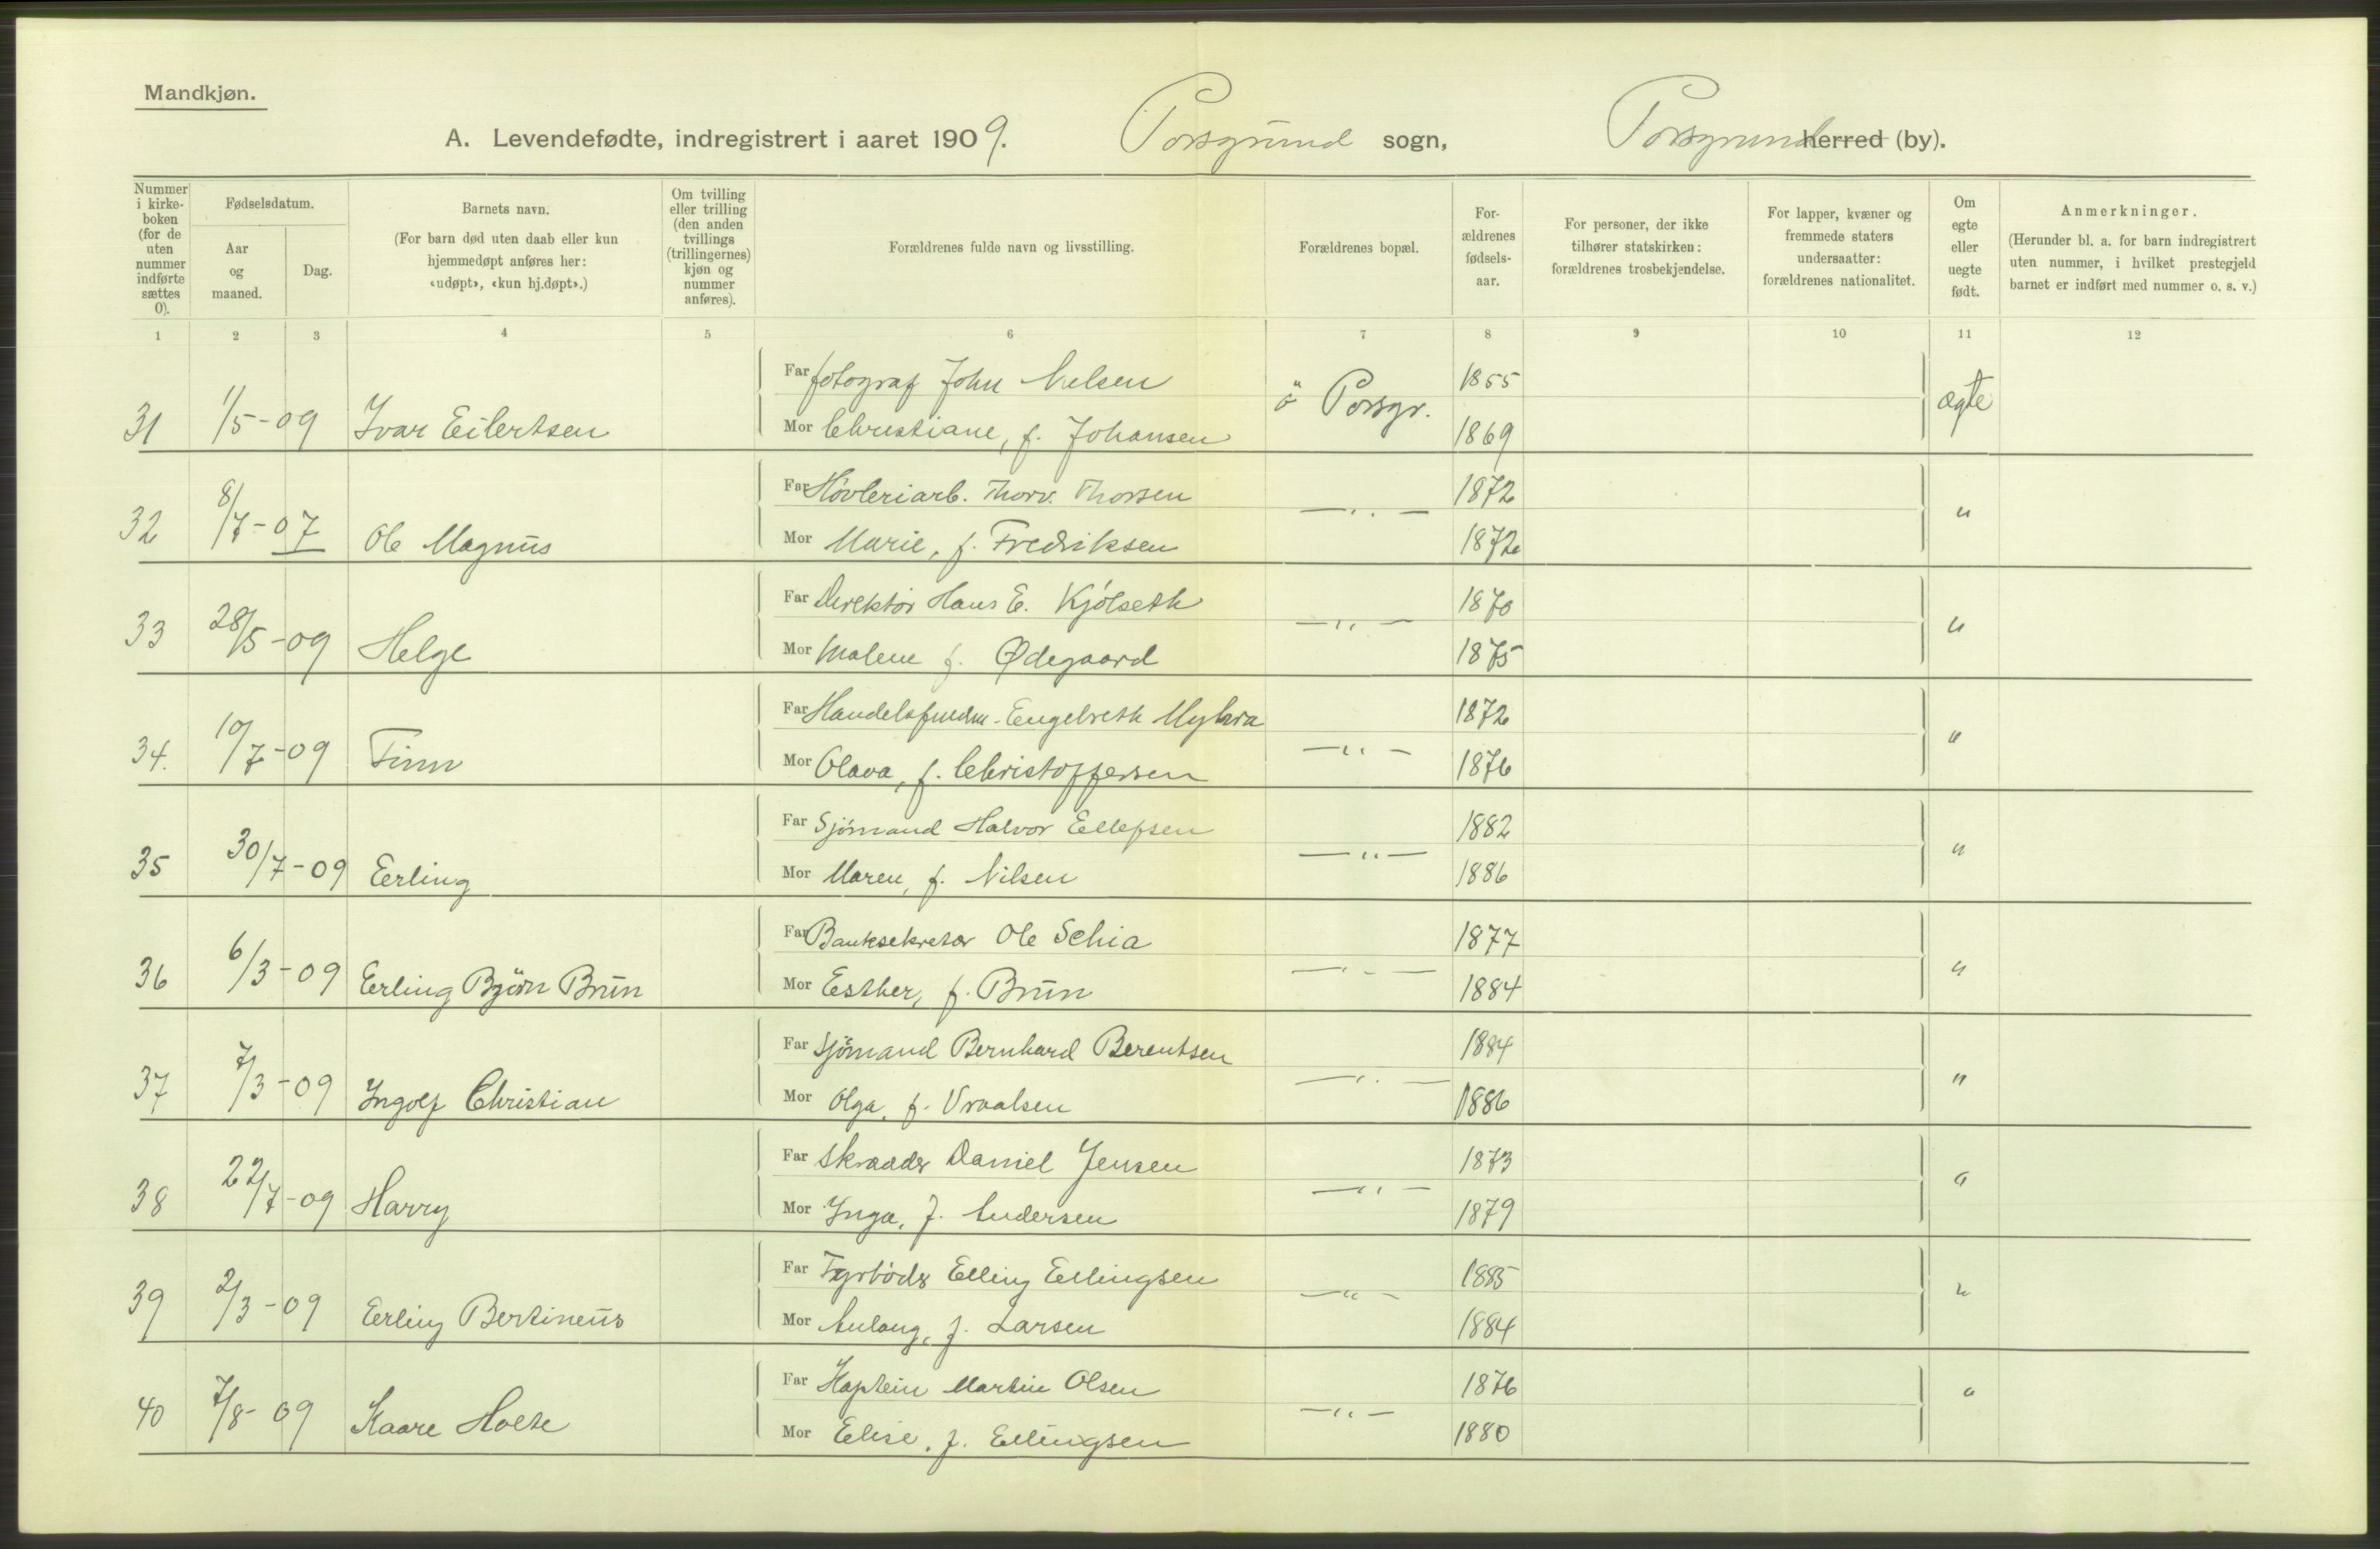 Mandkjøn.
A. Levendefødte, indregistrert i aaret 1909. Porsgrund sogn, Porsgrund herred (by).
Nummer i kirke-boken (for de uten nummer indførte sættes 0).
Fødselsdatum.
Aar og maaned.
Dag.
Barnets navn.
(For barn død uten daab eller kun hjemmedøpt anføres her: «udøpt», «kun hj.døpt».)
Om tvilling eller trilling (den anden tvillings (trillingernes) kjøn og nummer anføres).
Forældrenes fulde navn og livsstilling.
Forældrenes bopæl.
For-ældrenes fødsels-aar.
For personer, der ikke tilhører statskirken: forældrenes trosbekjendelse.
For lapper, kvæner og fremmede staters undersaatter: forældrenes nationalitet.
Om egte eller uegte født.
Anmerkninger.
(Herunder bl. a. for barn indregistrert uten nummer, i hvilket prestegjeld barnet er indført med nummer o. s. v.)
1 2 3 4 5 6 7 8 9 10 11 12
Far fotograf John Nelsen 1855
31 1/5-09 Ivar Eilertsen ö Porsgr. ægte
Mor Christiane, f. Johansen 1869
Far Høvleriarb. Thorv. Thorsen 1872
32 8/7-07 Ole Magnus —„— "
Mor Marie, f. Fredriksen 1872
Far Direktør Hans E. Kjölseth 1870
33 28/5-09 Helge —„— "
Mor Malene f. Ødegaard 1875
Far Engelreth Myhra 1872
34. 10/7-09 Finn —„— "
Mor Olava, f. Christoffersen 1876
Far Sjömand Halvor Ellefsen 1882
35 30/7-09 Erling —„— "
Mor Maren, f. Nilsen 1886
Far Banksekretær Ole Schia 1877
36 6/3-09 Erling Bjørn Brun —„— "
Mor Esther, f. Brun 1884
Far Sjömand Bernhard Berentsen 1884
37 7/3-09 Ingolf Christian —„— "
Mor Olga, f. Vraalsen 1886
Far Skrædder Daniel Jensen 1873
38 22/7-09 Harry —„— "
Mor Inga, f. Andersen 1879
Far Fyrböder Elling Ellingsen 1885
39 2/3-09 Erling Bertineus —„— "
Mor Anlaug, f. Larsen 1884
Far Kaptein Martin Olsen 1876
40 7/8-09 Kaare Holte —„— "
Mor Elise, f. Ellingsen 1880